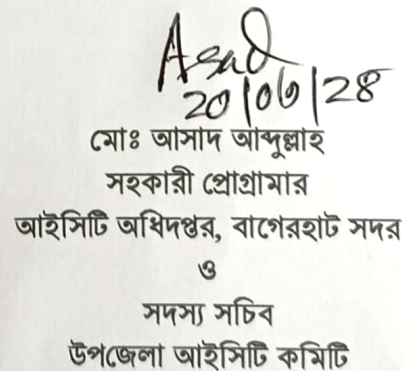 Asad
20/06/28
মোঃ আসাদ আব্দুল্লাহ
সহকারী প্রোগ্রামার
আইসিটি অধিদপ্তর, বাগেরহাট সদর
ও
সদস্য সচিব
উপজেলা আইসিটি কমিটি